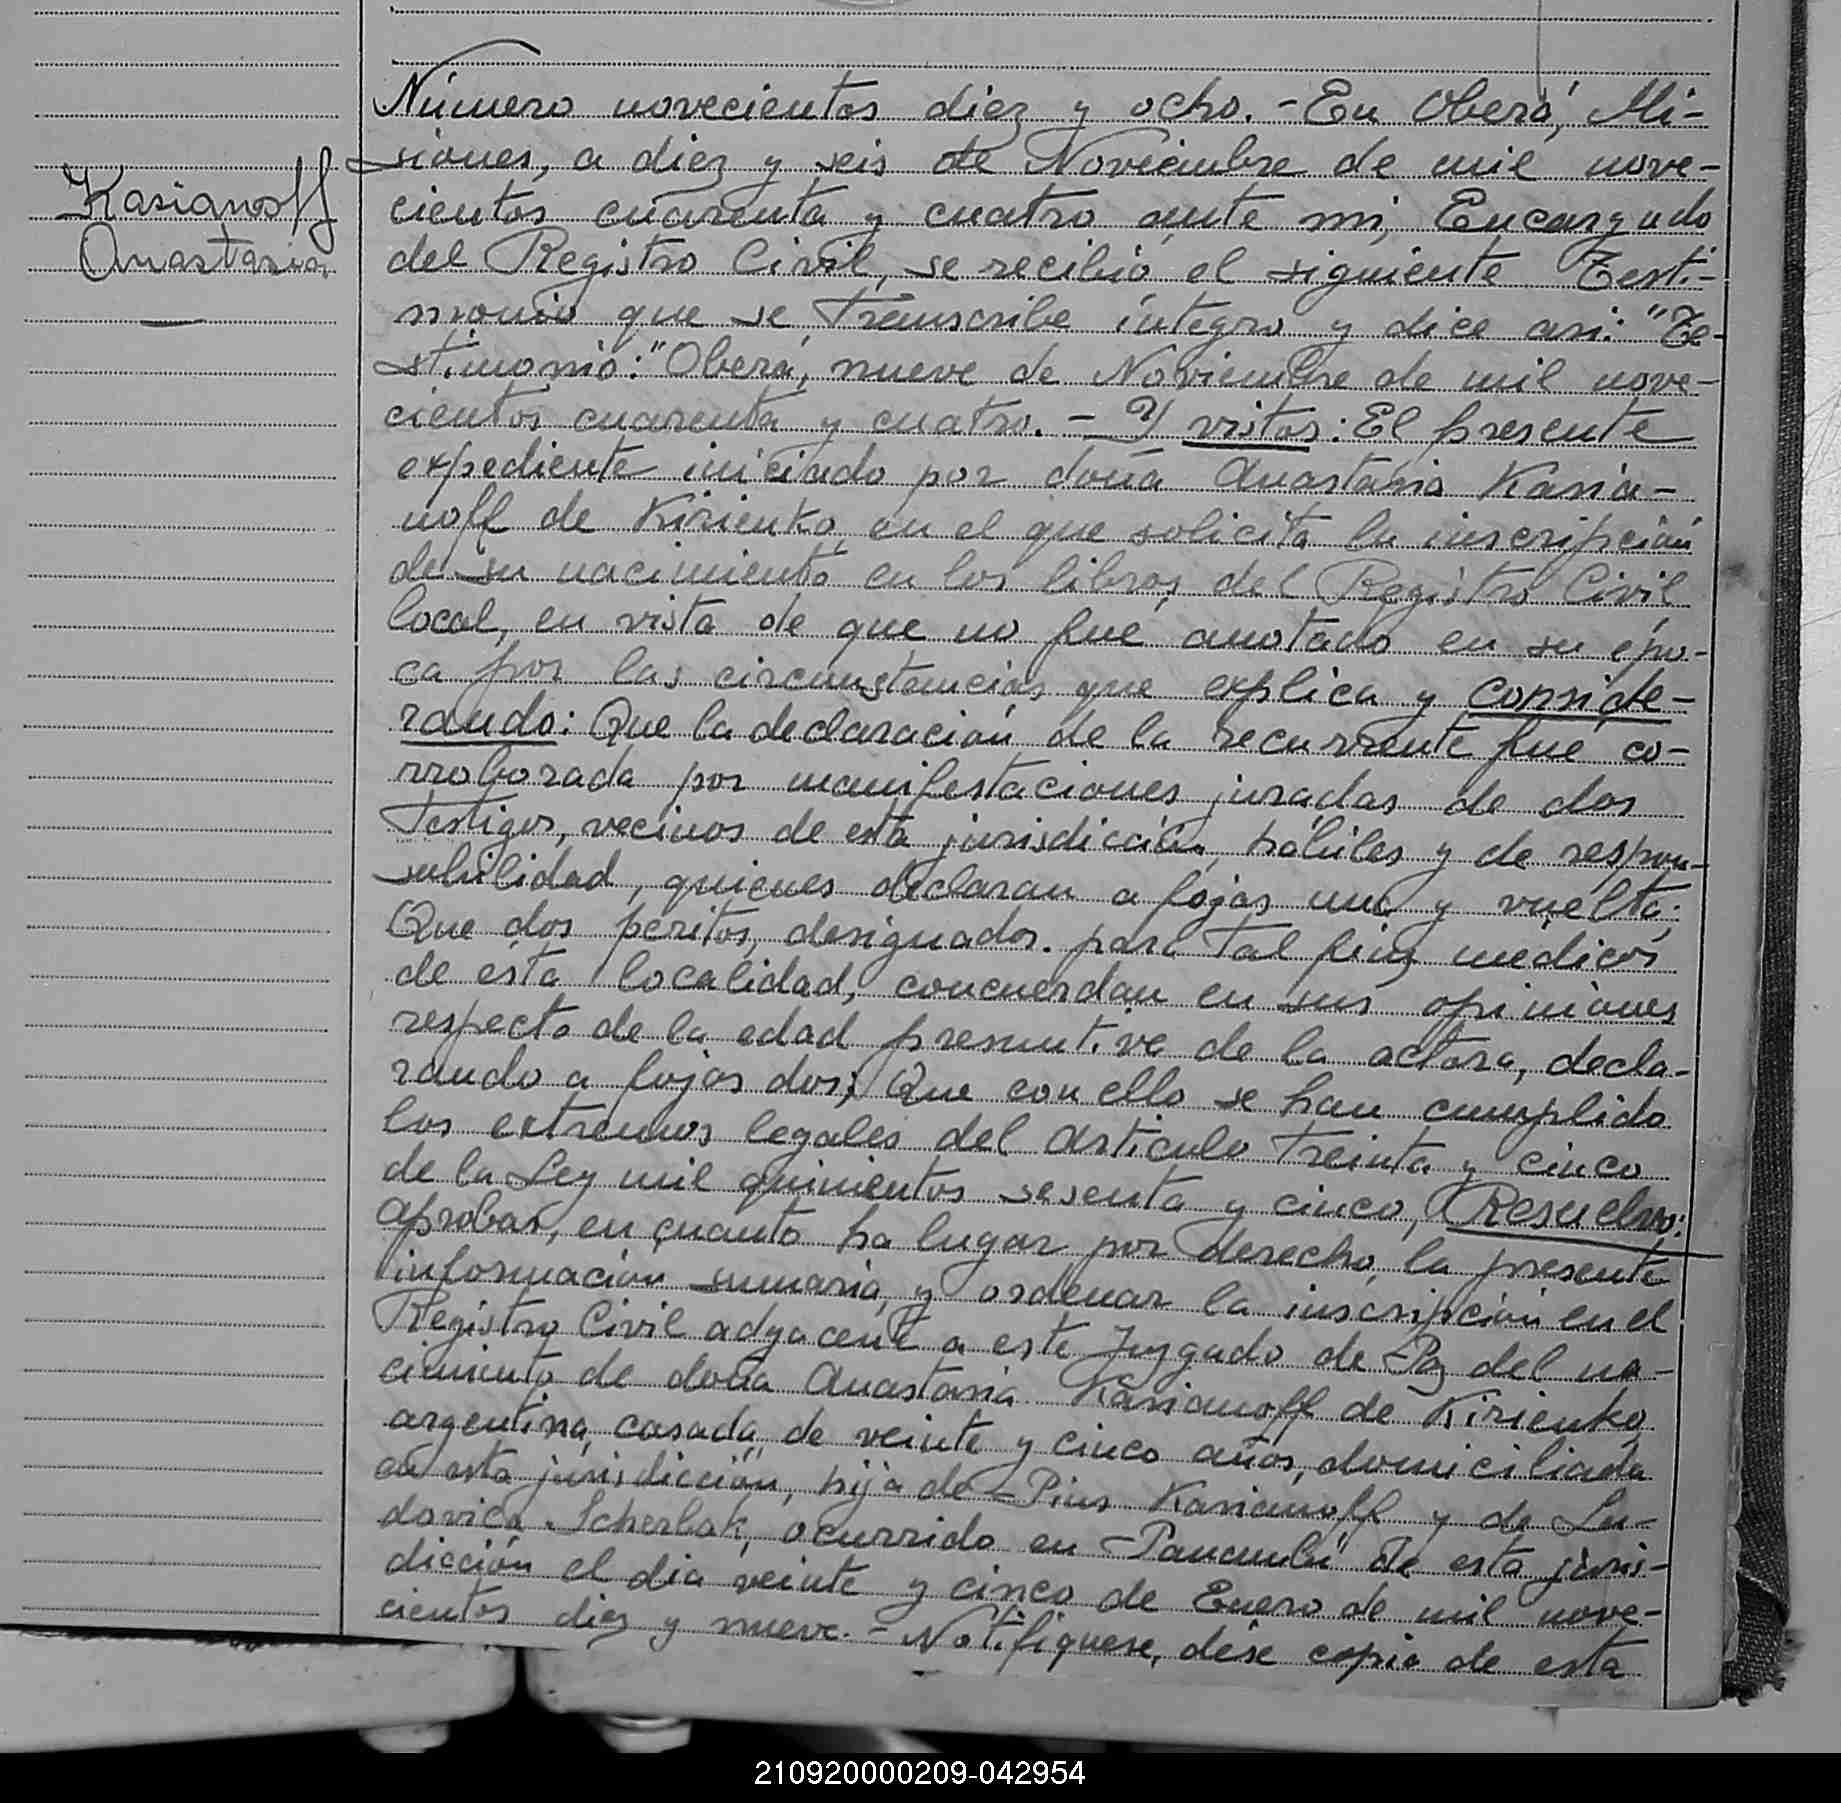 Kasianoff
Anastasia
Número novecientos diez y ocho. - En Oberá, Mi-
siones, a diez y seis de Noviembre de mil nove-
cientos cuarenta y cuatro ante mi, Encargado
del Registro Civil, se recibió el siguiente Testi-
monio que se transcribe íntegro y dice asi: "Te-
stimonio: "Oberá, nueve de Noviembre de mil nove-
cientos cuarenta y cuatro. - Y vistos: El presente
expediente iniciado por doña Anastasia Kasia-
noff de Kirienko, en el que solicita la inscripción
de su nacimiento en los libros del Registro Civil
local, en vista de que no fué anotado en su épo-
ca por las circunstancias que explica y conside-
rando: Que la declaración de la recurrente fué co-
rroborada por manifestaciones juradas de dos
testigos, vecinos de esta jurisdicción, hábiles y de respon-
sabilidad, quienes declaran a fojas una y vuelta;
Que dos peritos, designados para tal fin, médicos
de ésta localidad, concuerdan en sus opiniones
respecto de la edad presuntiva de la actora, decla-
rando a fojas dos; Que con ello se han cumplido
los extremos legales del artículo treinta y cinco
de la Ley mil quinientos sesenta y cinco, Resuelvo:
aprobar, en cuanto ha lugar por derecho, la presente
información sumaria, y ordenar la inscripción en el
Registro Civil adyacente a este Juzgado de Paz del na-
cimiento de doña Anastasia Kasianoff de Kirienko,
argentina, casada, de veinte y cinco años, domiciliada
en esta jurisdicción, hija de Pius Kasianoff y de Lu-
dovica Scherbak, ocurrido en Panambí de esta juris-
dicción el dia veinte y cinco de Enero de mil nove-
cientos diez y nueve. - Notifíquese, dése copia de esta
210920000209-042954